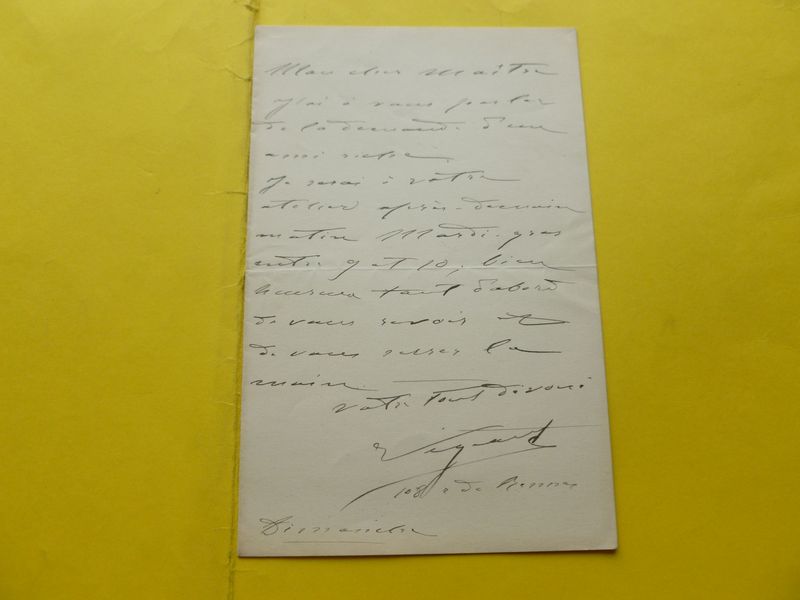 Mon cher Maître
J'ai à vous parler
de la demande d'un
ami
Je serai à votre
atelier après-demain
matin Mardi-gras
entre 9 et 10, bien
heureux tout d'abord
de vous revoir et
de vous serrer la
main
votre tout dévoué
108 r de Rennes
Dimanche